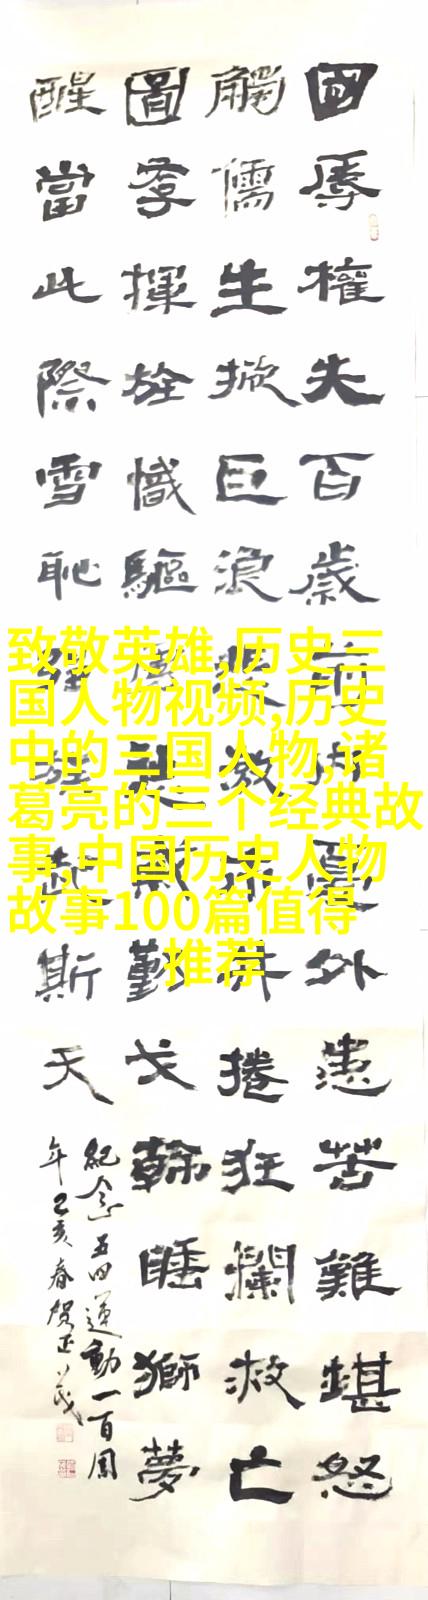 國辱權失百歲前內憂外患苦難堪怒
觸儒生掀巨浪激捲狂瀾救亡
圖存揮旌幟驅勤戈斡睡獅夢
醒當此際雪恥起斯天
紀念五四運動一百周
年己亥春賀正
致敬英雄,历史三
国人物视频,历史
中的三国人物,诸
葛亮的三个经典故
事,中国历史人物
故事100篇值得
推荐